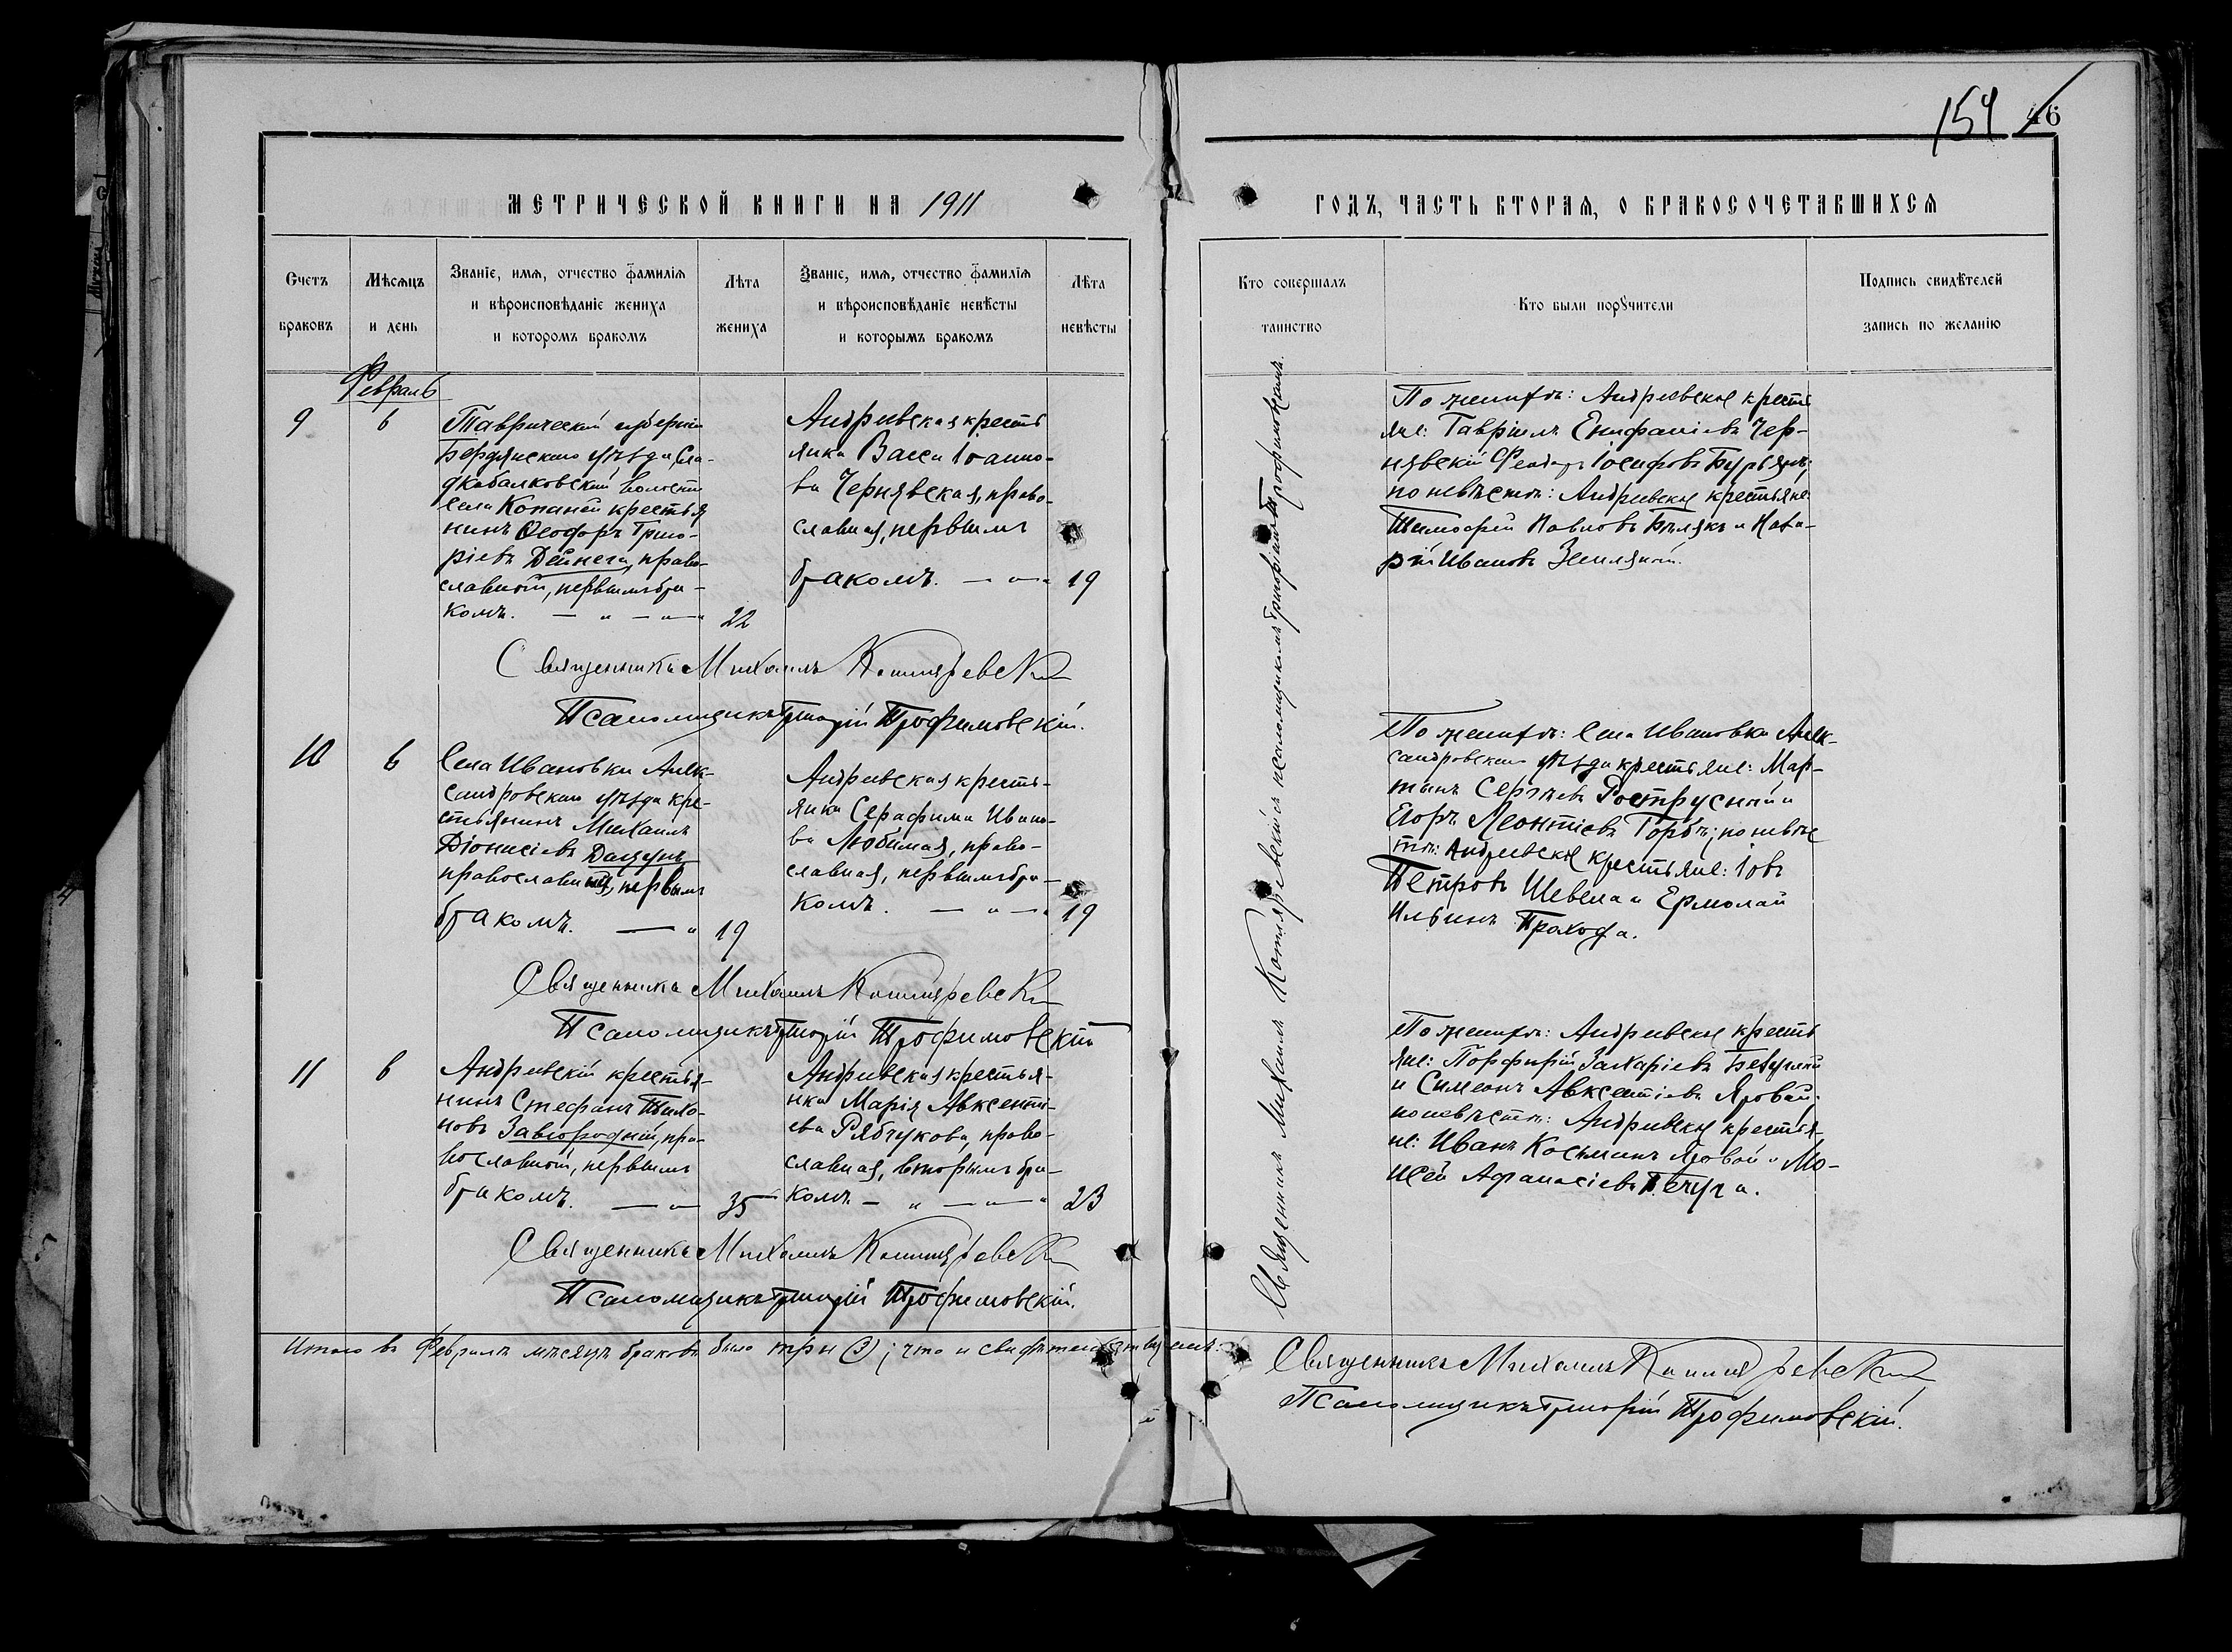 154 46
МЕТРИЧЕСКОЙ КНИГИ НА 1911
ГОДЪ, ЧАСТЬ ВТОРАЯ, О БРАКОСОЧЕТАВШИХСЯ
Счетъ
браковъ
Мѣсяцъ
и день
Званіе, имя, отчество фамилія
и вѣроисповѣданіе жениха
и которомъ бракомъ
Лѣта
жениха
Званіе, имя, отчество фамилія
и вѣроисповѣданіе невѣсты
и которымъ бракомъ
Лѣта
невѣсты
Кто совершалъ
таинство
Кто были порꙋчители
Подпись свидѣтелей
запись по желанію
Февраль
9
6
Таврической губерніи
Бердянскаго уѣзда,
волости
села Копаней крестья
нинъ Ѳеодоръ Григо-
ріевъ Дейнега, право-
славный, первымъ бра-
комъ. — „ — „ — „
22
Андреевская кресть
янка Васса Іоанно-
ва Чернявская, право-
славная, первымъ
бракомъ. — „ — „
19
По женихѣ: Андреевскіе кресть
яне: Гавріилъ Епифаніевъ Чер-
нявскій Ѳеодоръ Іосифовъ
по невѣстѣ: Андреевскіе крестьяне:
Тимофей Павловъ Бѣлякъ и Наза-
рій Ивановъ Земляной.
Священникъ Михаилъ Котляревскій
Псаломщикъ Григорій Трофимовскій.
10
6
Села Ивановки Алек-
сандровскаго уѣзда кре-
стьянинъ Михаилъ
Діонисіевъ Дацунъ
православный, первымъ
бракомъ. — „
19
Андреевская кресть-
янка Серафима Ивано-
ва Любимая, право-
славная, первымъ бра-
комъ. — „ — „
19
По женихѣ: села Ивановки Алек-
сандровскаго уѣзда крестьяне: Мар-
тынъ Сергѣевъ Рострусный и
Егоръ Леонтіевъ Горбъ; по невѣс
тѣ: Андреевскіе крестьяне: Іовъ
Петровъ Шевела и Ермолай
Ильинъ Прахода.
Священникъ Михаилъ Котляревскій
Псаломщикъ Григорій Трофимовскій
11
6
Андреевскій крестья-
нинъ Стефанъ Тихо-
новъ Завгородній, пра-
вославный, первымъ
бракомъ. — „ —
35
Андреевская крестья-
нка Марія Авксенті-
ева Рябчукова, право-
славная, вторымъ бра-
комъ — „ — „ — „
23
По женихѣ: Андреевскіе кресть
яне: Порфирій Захаріевъ
и Симеонъ Авксентіевъ Яровый;
по невѣстѣ: Андреевскіе крестья-
не: Иванъ Косминъ Яровой и Мо-
исей Афанасіевъ Печура.
Священникъ Михаилъ Котляревскій
Псаломщикъ Григорій Трофимовскій.
Священникъ Михаилъ Котляревскій съ псаломщикомъ Григоріемъ Трофимовскимъ.
Итого въ Февралѣ мѣсяцѣ браковъ было три (3); что и свидѣтельствуемъ:
Священникъ Михаилъ Котляревскій
Псаломщикъ Григорій Трофимовскій.